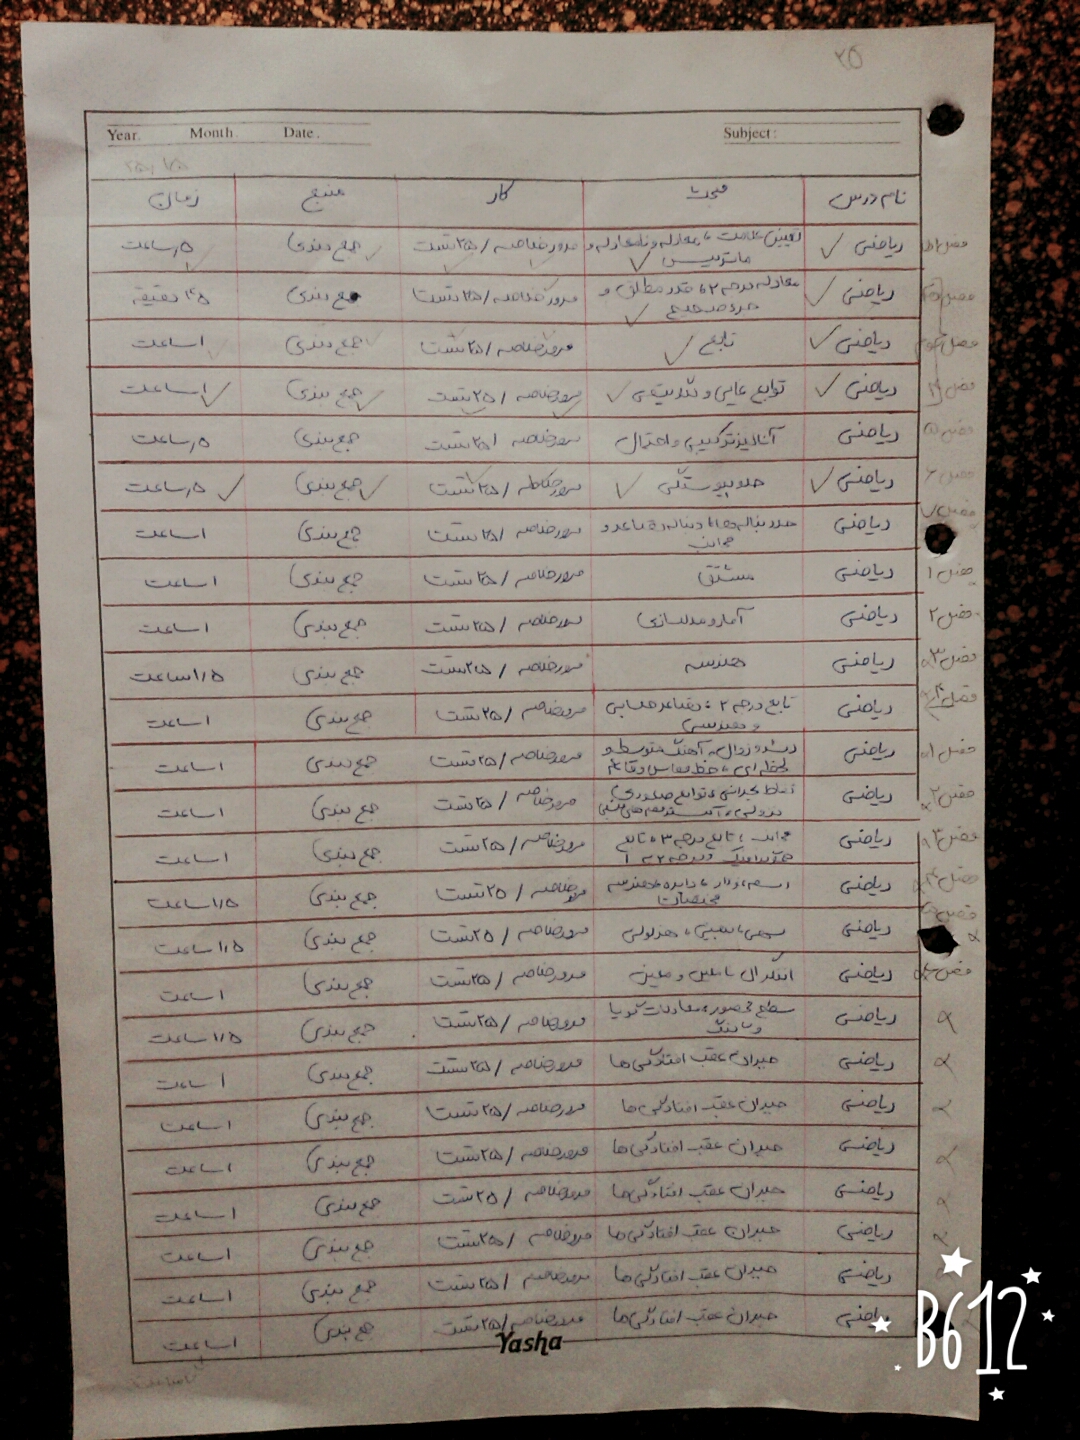 ۲۵
Year. Month. Date. Subject:
نام درس مبحث کار منبع زمان
ریاضی تعیین علامت، معادله و نامعادله و مرور خلاصه / ۲۵ تست جمع بندی ۱/۵ ساعت
ماتریس
ریاضی معادله درجه ۲، قدر مطلق و مرور خلاصه / ۲۵ تست جمع بندی ۴۵ دقیقه
جزء صحیح
ریاضی تابع مرور خلاصه / ۲۵ تست جمع بندی ۱ ساعت
ریاضی توابع نمایی و لگاریتمی مرور خلاصه / ۲۵ تست جمع بندی ۱ ساعت
ریاضی آنالیز ترکیبی و احتمال مرور خلاصه / ۲۵ تست جمع بندی ۱/۵ ساعت
ریاضی حد و پیوستگی مرور خلاصه / ۲۵ تست جمع بندی ۱/۵ ساعت
ریاضی مرور خلاصه / ۲۵ تست جمع بندی ۱ ساعت
ریاضی مشتق مرور خلاصه / ۲۵ تست جمع بندی ۱ ساعت فصل ۱
ریاضی آمار و مدلسازی مرور خلاصه / ۲۵ تست جمع بندی ۱ ساعت فصل ۲
ریاضی هندسه مرور خلاصه / ۲۵ تست جمع بندی ۱/۵ ساعت فصل ۳
ریاضی تابع درجه ۲، تصاعد حسابی مرور خلاصه / ۲۵ تست جمع بندی ۱ ساعت
و هندسی
ریاضی رشد و زوال، آهنگ متوسط و مرور خلاصه / ۲۵ تست جمع بندی ۱ ساعت فصل ۱
لحظه ای، خط مماس و قائم
ریاضی نقاط بحرانی، توابع صعودی و مرور خلاصه / ۲۵ تست جمع بندی ۱ ساعت فصل ۲
نزولی، اکسترمم های نسبی
ریاضی مرور خلاصه / ۲۵ تست جمع بندی ۱ ساعت فصل ۳
ریاضی رسم نمودار، دایره، هندسه مرور خلاصه / ۲۵ تست جمع بندی ۱/۵ ساعت
مختصات
ریاضی سهمی، بیضی، هذلولی مرور خلاصه / ۲۵ تست جمع بندی ۱/۵ ساعت
ریاضی انتگرال نامعین و معین مرور خلاصه / ۲۵ تست جمع بندی ۱ ساعت
ریاضی سطح محصور، معادلات گویا مرور خلاصه / ۲۵ تست جمع بندی ۱/۵ ساعت
و گنگ
ریاضی جبران عقب افتادگی ها مرور خلاصه / ۲۵ تست جمع بندی ۱ ساعت
ریاضی جبران عقب افتادگی ها مرور خلاصه / ۲۵ تست جمع بندی ۱ ساعت
ریاضی جبران عقب افتادگی ها مرور خلاصه / ۲۵ تست جمع بندی ۱ ساعت
ریاضی جبران عقب افتادگی ها مرور خلاصه / ۲۵ تست جمع بندی ۱ ساعت
ریاضی جبران عقب افتادگی ها مرور خلاصه / ۲۵ تست جمع بندی ۱ ساعت
ریاضی جبران عقب افتادگی ها مرور خلاصه / ۲۵ تست جمع بندی ۱ ساعت
ریاضی جبران عقب افتادگی ها مرور خلاصه / ۲۵ تست جمع بندی ۱ ساعت
Yasha
B612